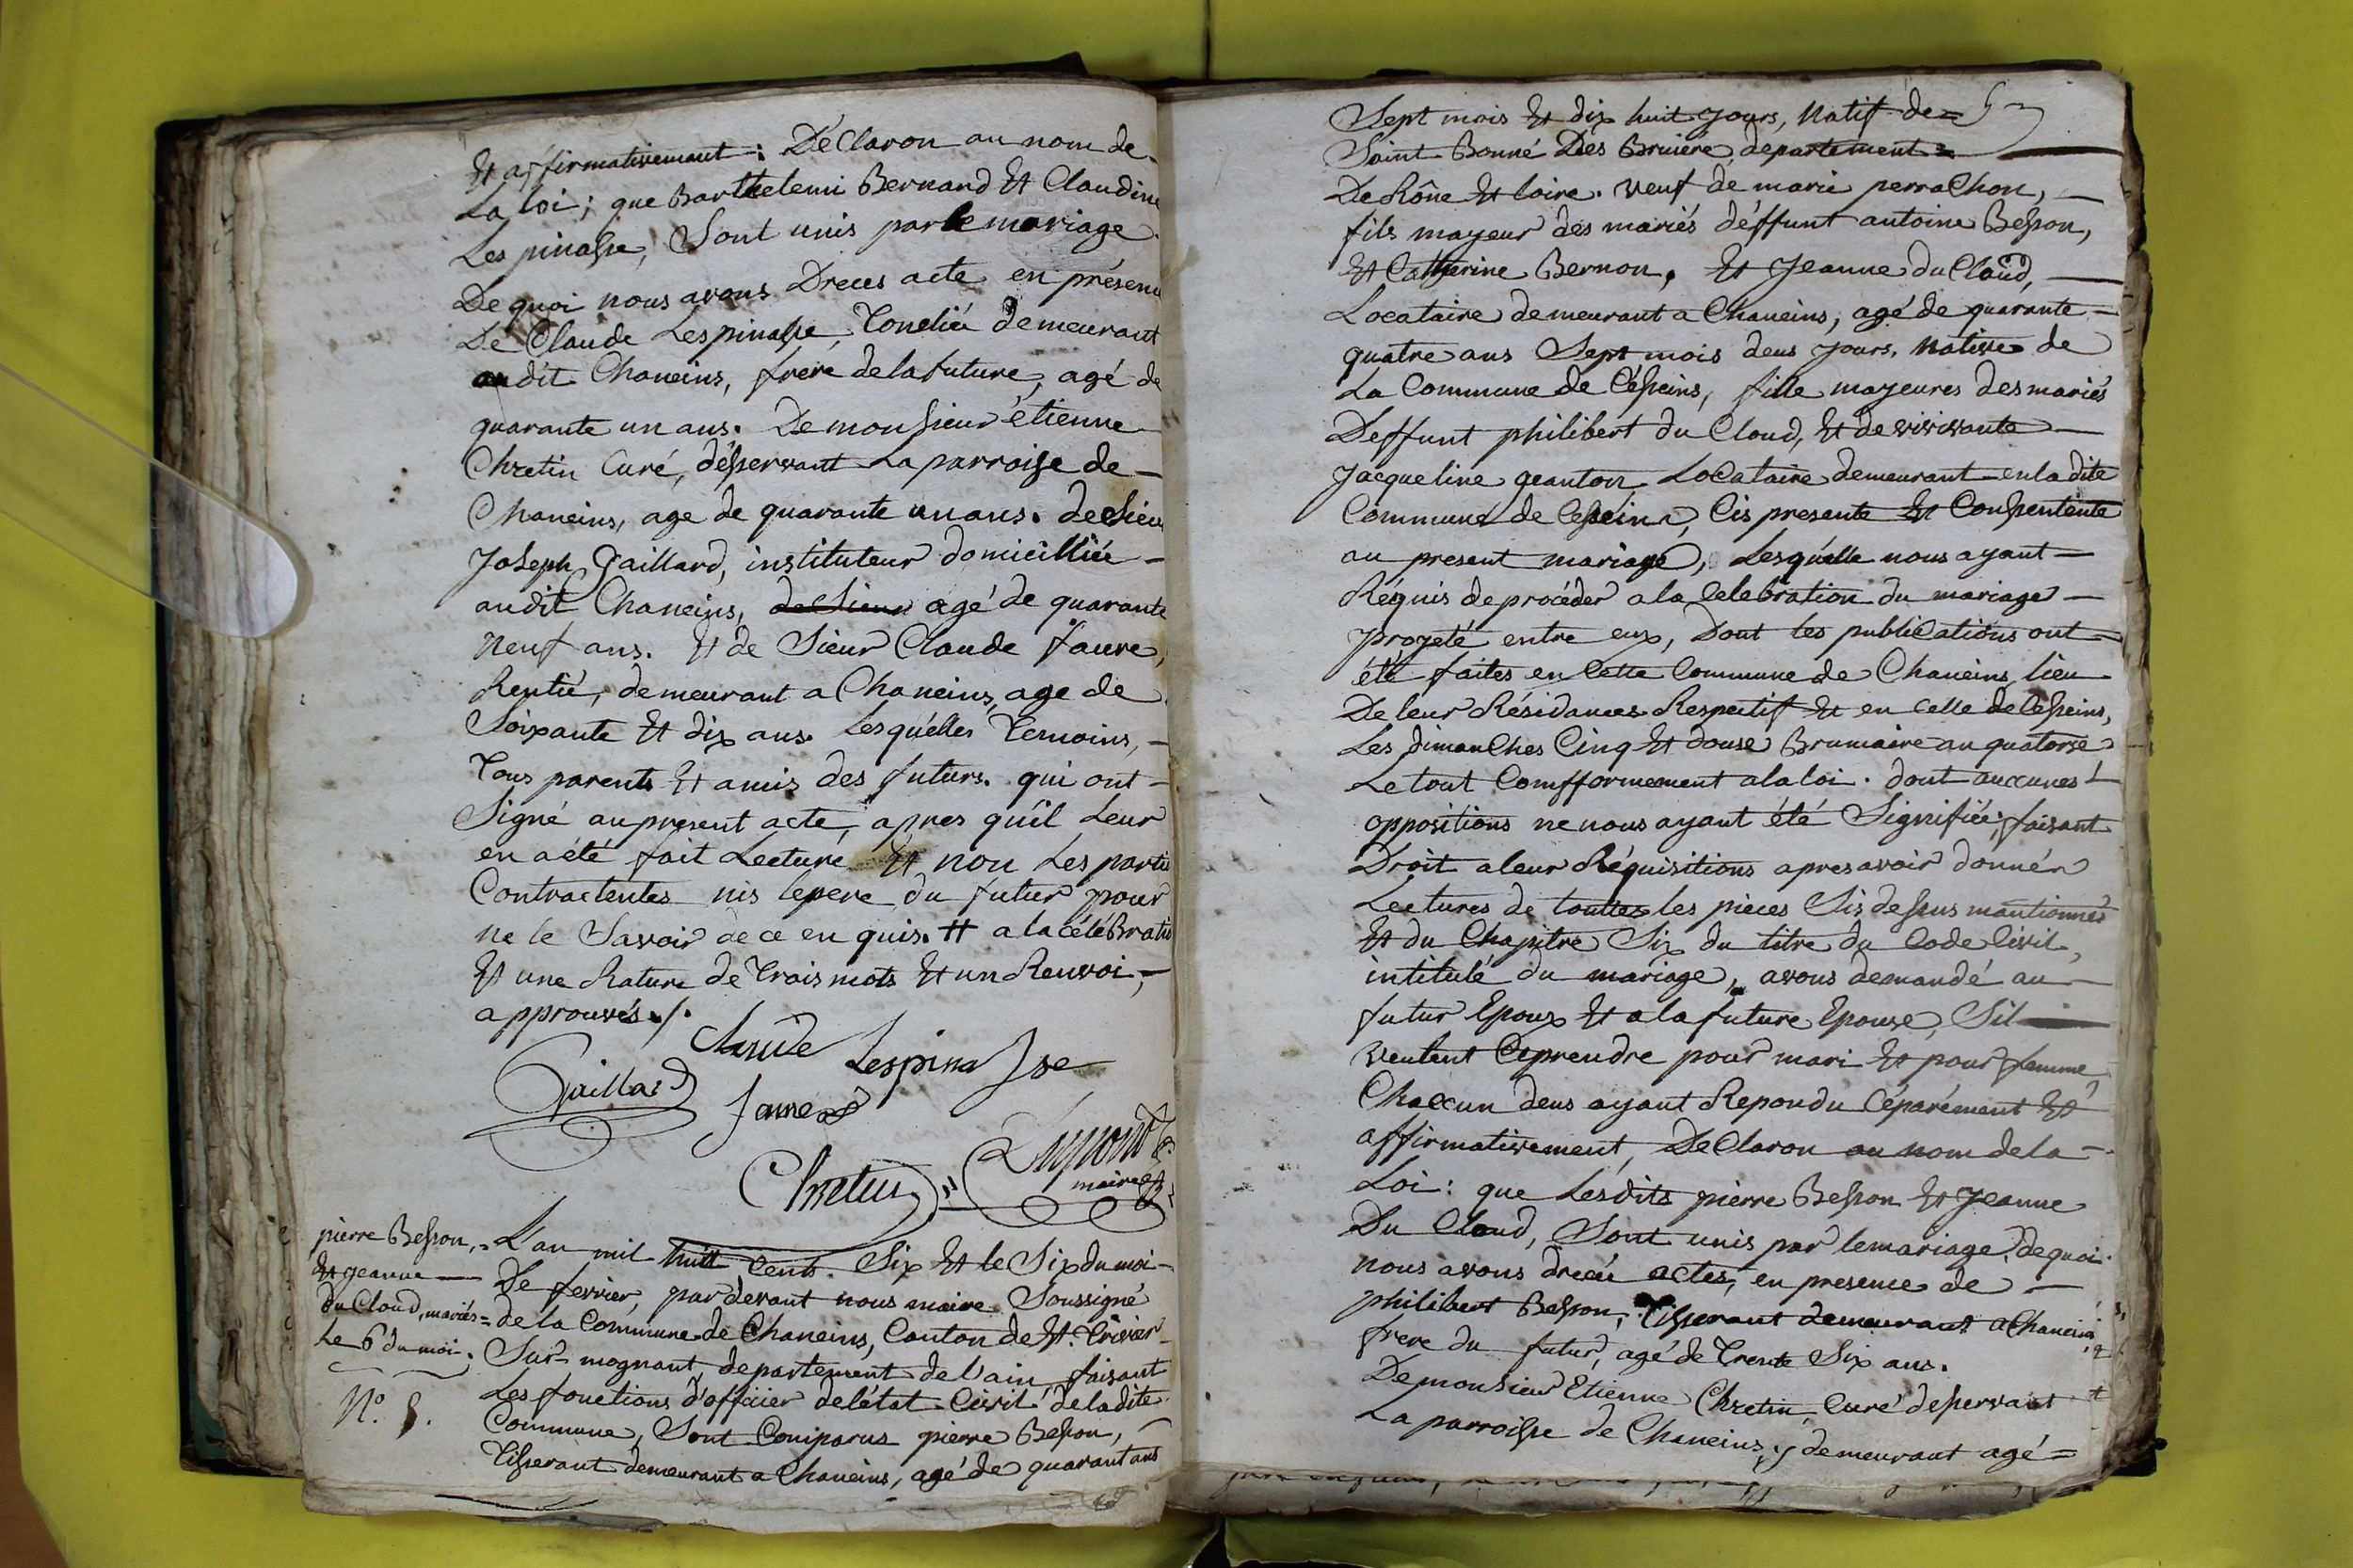 Et affirmativement: Déclaron au nom de
La loi; que Barthelemi Bernand Et Claudine
Lespinasse, Sont unis par le mariage
De quoi nous avons Drecés acte en présence
De Claude Lespinasse, Toneliée demeurant
audit Chaneins, frere de la future, agé de
quarante un ans. De monsieur étienne
Chretin Curé, désservant La parroisse de
Chaneins, age de quarante un ans. de Sieur
Joseph Gaillard, instituteur domicilliée
audit Chaneins, de Sieur agé de quarante
neuf ans. Et de Sieur Claude faure,
Rentié, demeurant a Chaneins, age de
Soixante Et dix ans. Lesquélles Temoins,
Tous parents Et amis des futurs. qui ont
Signé au present acte, apres qu'il Leur
en a été fait Lecture Et non Les partie
Contractentes nis le pere du futur pour
ne le Savoir de ce en quis. # a la célébration
Et une Rature de Trois mots Et un Renvoi,
approuvés ./.
Claude Lespinasse
Gaillard faure
Chretin Dupont
maire
pierre Besson,
Et Jeanne
du Cloud, mariés
Le 6 du moi.
N.º 8.
L'an mil huit Cents Six Et le Six du moi
De fevrier, par devant nous maire Soussigné
de la Commune de Chaneins, Canton de St. Trivier
Sur mognant, departement de l'ain, faisant
Les fonctions d'officier de l'état Civil de la dite
Commune, Sont Comparus pierre Besson,
Tisserant demeurant a Chaneins, agé de quarant ans
Sept mois Et dix huit Jours, Natif de
Saint Bonné Des Bruiere, departement
De Rône Et loire. veuf de marie perrachon,
fils mayeur des mariés déffunt antoine Besson,
Et Catherine Bernon, Et Jeanne du Cloud,
Locataire demeurant a Chaneins, agé de quarante
quatre ans Sept mois deus Jours, Native de
La Commune de Césseins, fille mayeures des mariés
Deffunt philibert du Cloud, Et de vivivante
Jacqueline geanton Locataire demeurant en la dite
Commune de Cesseins, Cis presente Et Consentente
au present mariage, Lesquélle nous ayant
Réquis de procéder a la Celebration du mariage
projeté entre eux, Dont les publications ont
été faites en Cette Commune de Chaneins, lieu
De leur Résidances Respectif Et en celle de Cesseins,
Les Dimanches Cinq Et douse Brumaire an quatorse
Le tout Comfformement a la loi. dont aucunes
oppositions ne nous ayant été Signifiée, faisant
Droit a leur Réquisitions apres avoir donnér
Lectures de touttes les pieces Sis dessus mantionnés
Et du Chapitre Six du titre du Code Civil,
intitulé du mariage, avons demandé au
futur Epoux Et a la future Epouse, Sil
veulent Ceprendre pour mari Et pour femme
Chaccun deus ayant Repondu Céparément Et
affirmativement, DeClaron au nom de la
Loi: que Lesdits pierre Besson Et Jeanne
Du Cloud, Sont unis par le mariage, de quoi
nous avons drecée actes, en presence de
philibert Besson, Tisserant demeurant a Chaneins
frere du futur, agé de Trente Six ans.
De monsieur Etienne Chretin, Curé desservant
La parroisse de Chaneins, y demeurant agé